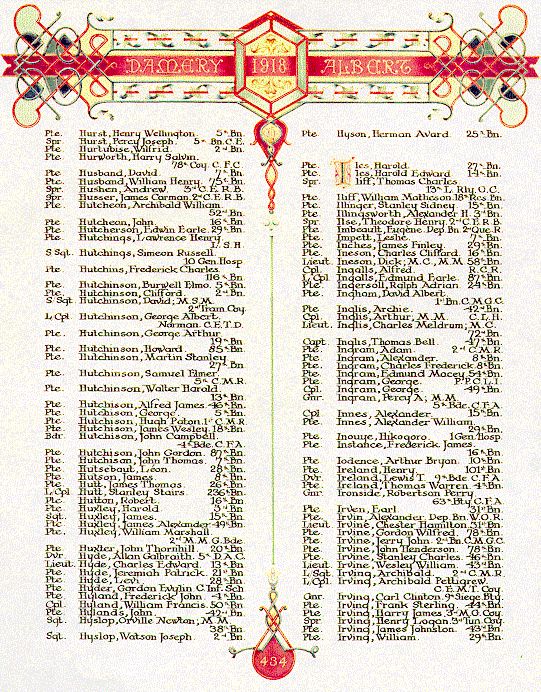 DAMERY 1918 ALBERT
Pte. Hurst, Henry Wellington. 5th Bn.
Spr. Hurst, Percy Joseph. 5th Bn. C.E.
Pte. Hurtubise, Wilfrid. 2nd Bn.
Pte. Hurworth, Harry Salvin.
78th Coy. C.F.C.
Pte. Husband, David. 7th Bn.
Pte. Husband, William Henry. 75th Bn.
Spr. Hushen, Andrew. 3rd C.E.R.B.
Spr. Husser, James Carman. 2nd C.E.R.B.
Pte. Hutcheon, Archibald William.
52nd Bn.
Pte. Hutcheon, John.
Pte. Hutcherson, Edwin Earle. 29th Bn.
Pte. Hutchings, Lawrence Henry.
L.S.H.
S Sgt. Hutchings, Simeon Russell.
10 Gen. Hosp
Pte. Hutchins, Frederick Charles.
116th Bn.
Pte. Hutchinson, Burwell Elmo. 5th Bn.
Pte. Hutchinson, Clifford. 2nd Bn.
S Sgt. Hutchinson, David; M.S.M.
2nd Tram Coy.
L/Cpl. Hutchinson, George Albert.
Norman. C.E.T.D.
Pte. Hutchinson, George Arthur.
19th Bn.
Pte. Hutchinson, Howard. 85th Bn.
Pte. Hutchinson, Martin Stanley.
27th Bn.
Pte. Hutchinson, Samuel Elmer.
5th C.M.R.
Pte. Hutchinson, Walter Harold.
13th Bn.
Pte. Hutchison, Alfred James. 46th Bn.
Pte. Hutchison, George. 5th Bn.
Pte. Hutchison, Hugh Paton. 1st C.M.R.
Pte. Hutchison, James Wesley. 18th Bn.
Bdr. Hutchison, John Campbell.
4th Bde. C.F.A.
Pte. Hutchison, John Gordon. 87th Bn.
Pte. Hutchison, John Thomas. 7th Bn.
Pte. Hutsebaut, Léon. 28th Bn.
Pte. Hutson, James. 8th Bn.
Pte. Hutt, James Thomas. 26th Bn.
L/Cpl. Hutt, Stanley Stairs. 236th Bn.
Pte. Hutton, Robert. 16th Bn.
Pte. Huxley, Harold. 3rd Bn.
Sgt. Huxley, James. 15th Bn.
Pte. Huxley, James Alexander. 49th Bn.
Pte. Huxley, William Marshall.
2nd M.M.G. Bde.
Pte. Huxter, John Thornhill. 20th Bn.
Dvr. Hyde, Allan Galbraith. 5th D.A.C.
Lieut. Hyde, Charles Edward. 13th Bn.
Pte. Hyde, Jeremiah Patrick. 21st Bn.
Pte. Hyde, Levi. 28th Bn.
Pte. Hyder, Gordon Evylin. C. Inf. Sch
Pte. Hyland, Frederick John. 4th Bn.
Cpl. Hyland, William Francis. 50th Bn.
Pte. Hylands, John. 42nd Bn.
Sgt. Hyslop, Orville Newton; M.M.
38th Bn.
Sgt. Hyslop, Watson Joseph. 2nd Bn.
Pte. Hyson, Herman Avard. 25th Bn.
Pte. Iles, Harold. 27th Bn.
Pte. Iles, Harold Edward. 14th Bn.
Spr. Iliff, Thomas Charles
13th L. Rly. O.C.
Pte. Iliff, William Matheson. 18th Res. Bn.
Pte. Illinger, Stanley Sidney. 15th Bn.
Pte. Illingsworth, Alexander H. 3rd Bn.
Spr. Ilse, Theodore Henry. 2nd C.E.R.B.
Pte. Imbeault, Eugène. Dep. Bn. 2nd Que. R.
Pte. Impett, Leslie. 7th Bn.
Pte. Inches, James Finley. 29th Bn.
Pte. Ineson, Charles Clifford. 16th Bn.
Lieut. Ineson, Dick; M.C., M.M. 58th Bn.
Cpl. Ingalls, Alfred. R.C.R.
L/Cpl. Ingalls, Edmund Earle. 87th Bn.
Pte. Ingersoll, Ralph Adrian. 24th Bn.
Pte. Ingham, David Albert.
1st Bn. C.M.G.C.
Pte. Inglis, Archie. 42nd Bn.
Cpl. Inglis, Arthur, M.M. C.L.H.
Lieut. Inglis, Charles Meldrum; M.C.
72nd Bn.
Capt. Inglis, Thomas Bell. 47th Bn.
Pte. Ingram, Adam. 2nd C.M.R.
Pte. Ingram, Alexander. 8th Bn.
Pte. Ingram, Charles Frederick. 8th Bn.
Pte. Ingram, Edmund Macey. 54th Bn.
Pte. Ingram, George. P.P.C.L.I.
Cpl. Ingram, George. 49th Bn.
Gnr. Ingram, Percy A.; M.M.
5th Bde. C.F.A.
Cpl. Innes, Alexander. 15th Bn.
Pte. Innes, Alexander William.
29th Bn.
Pte. Inouye, Hikogoro. 1 Gen. Hosp.
Pte. Instance, Frederick James.
16th Bn.
Pte. Iodence, Arthur Bryan. 10th Bn.
Pte. Ireland, Henry. 101st Bn.
Dvr. Ireland, Lewis T. 9th Bde. C.F.A.
Pte. Ireland, Thomas Warren. 4th Bn.
Gnr. Ironside, Robertson Perry.
63rd Bty. C.F.A
Pte. Irven, Earl. 31st Bn.
Pte. Irvin, Alexander. Dep. Bn. W.O.R.
Lieut. Irvine, Chester Hamilton. 31st Bn.
Pte. Irvine, Gordon Wilfred. 78th Bn.
Pte. Irvine, Jerry John. 2nd Bn. C.M.G.C.
Pte. Irvine, John Henderson. 78th Bn.
Pte. Irvine, Stanley Charles. 46th Bn.
Lieut. Irvine, Wesley William. 43rd Bn.
L/Sgt. Irving, Archibald. 2nd C.M.R
L/Cpl. Irving, Archibald Pettigrew.
C.E.M.T. Coy.
Gnr. Irving, Carl Clinton. 9th Siege Bty.
Pte. Irving, Frank Sterling. 44th Bn.
Pte. Irving, Harry James. 3rd M.O. Coy
Spr. Irving, Henry Logan. 3rd Tun. Coy.
Pte. Irving, James Johnston. 43rd Bn.
Pte. Irving, William. 29th Bn.
434